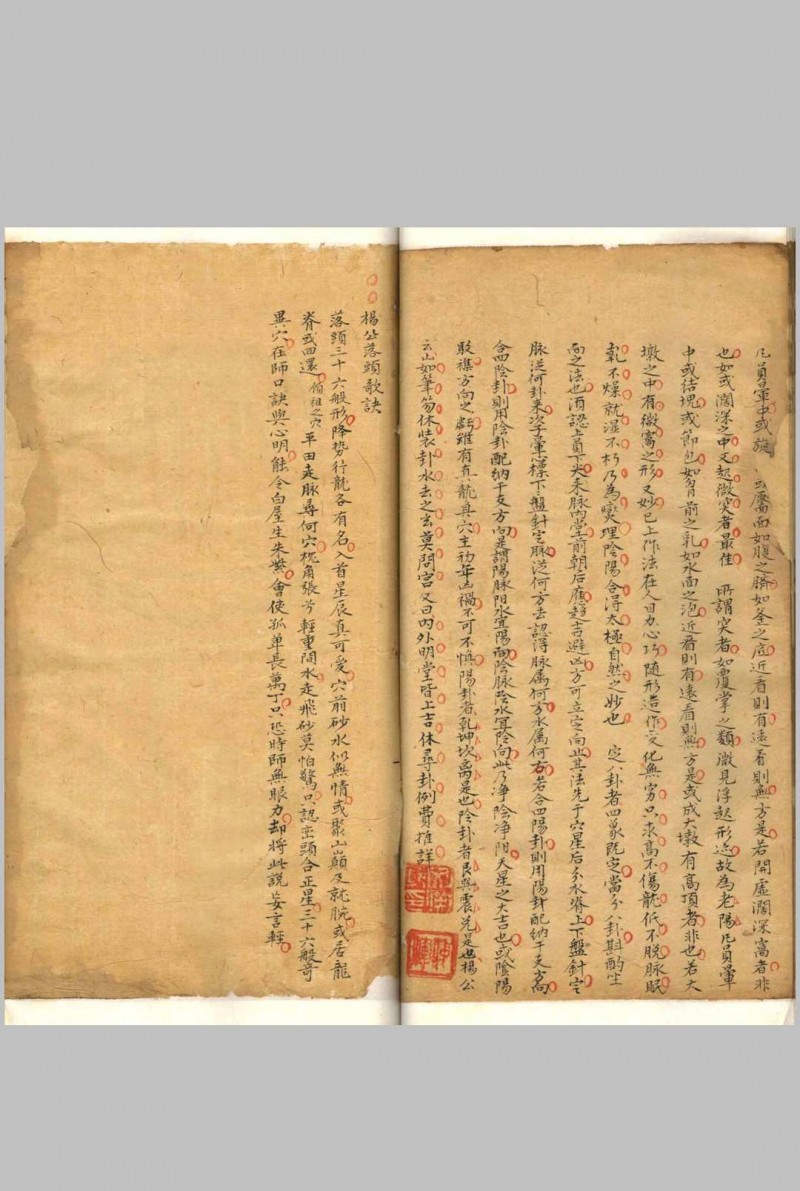 凡員暈中或旋 么靨面如腹之臍如釜之底近看則有遠看則無方是若開虛濶深窩者非
也如或濶深之中又起微突者最佳 所謂突者如覆掌之類微見浮起形迹故為老陽凡員暈
中或結塊或節包如胷前之乳如水面之泡近看則有遠看則無方是或成大墩有高頂者非也若大
墩之中有微窩之形又妙已上作法在人目力心巧隨形造作变化無穷只求高不傷龍低不脱脉眠
乾不燥就湿不朽乃為燮理陰陽合得太極自然之妙也 定八卦者四象既定當分八卦斟酌坐
向之法也須認上員下尖来脉内堂前朝后應趨吉避凶方可立定向也其法先于穴星后分水脊上下盤針定
脉從何卦来次于暈心標下盤針定脉從何方去認得脉属何方水属何方若合四陽卦則用陽卦配納干支方向
合四陰卦則用陰卦配納干支方向是謂陽脉阳水宜陽向陰脉陰水宜陰向此乃净陰净阳天星之大吉也或陰陽
駁襍方向之虧雖有真龍真穴主初年凶禍不可不慎陽卦者乾坤坎离是也陰卦者艮巽震兑是也楊公
云山如筆笏休裝卦水去之玄莫問宫又曰内外明堂皆上吉休尋卦例費推詳
楊公落頭歌訣
落頭三十六般形降势行龍各有名入首星辰真可愛穴前砂水似無情或聚山巔及就脘或居龍
脊或四還偷祖之穴平田走脉尋何穴梹角張兮輕重間水走飛砂莫怕驚只認巒頭合正星三十六般奇
異穴在師口訣與心明能令白屋生朱紫會使孤单長萬丁只恐時師無眼力却將此說妄言輕